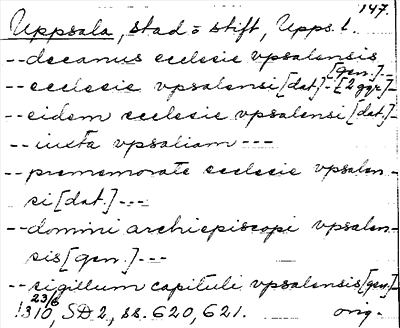 147.
Uppsala, stad = stift, Upps. l.
-- decanus ecclesie vpsalensis
[gen.]--
-- ecclesie vpsalensi [dat.] -- [2 ggr] --
-- eidem ecclesie vpsalensi [dat.] --
-- iuxta vpsaliam ---
-- prememorate ecclesie vpsalen-
si [dat.] ---
-- domini archiepiscopi vpsalen-
sis [gen.] ---
-- sigillum capituli vpsalensis [gen.] --
1310 23/6, SD 2, ss. 620, 621. orig.